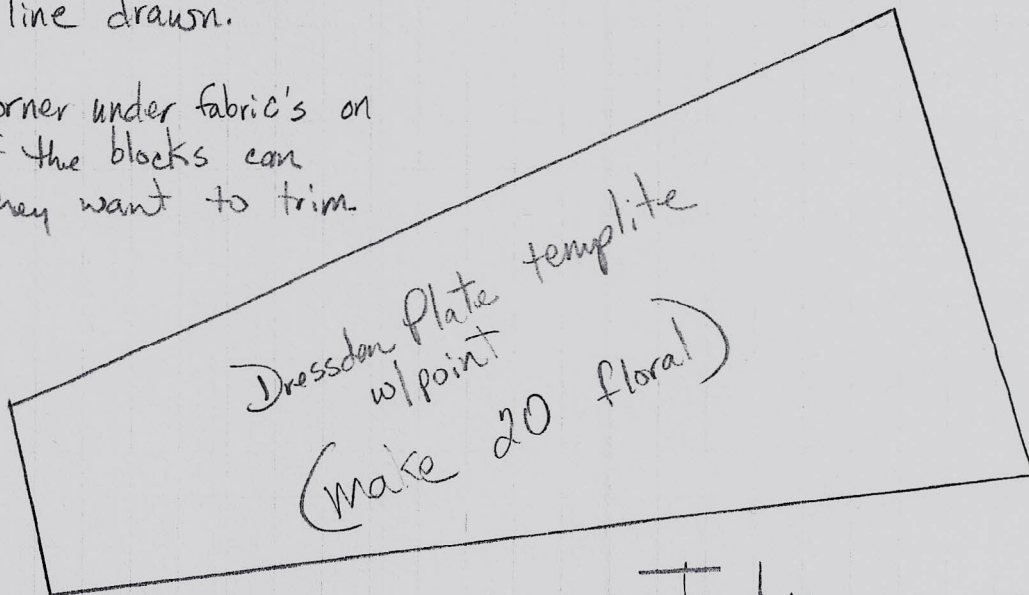 line drawn.
orner under fabric's on
the blocks can
hey want to trim.
Dressdon Plate templite
w/point
(make 20 floral)